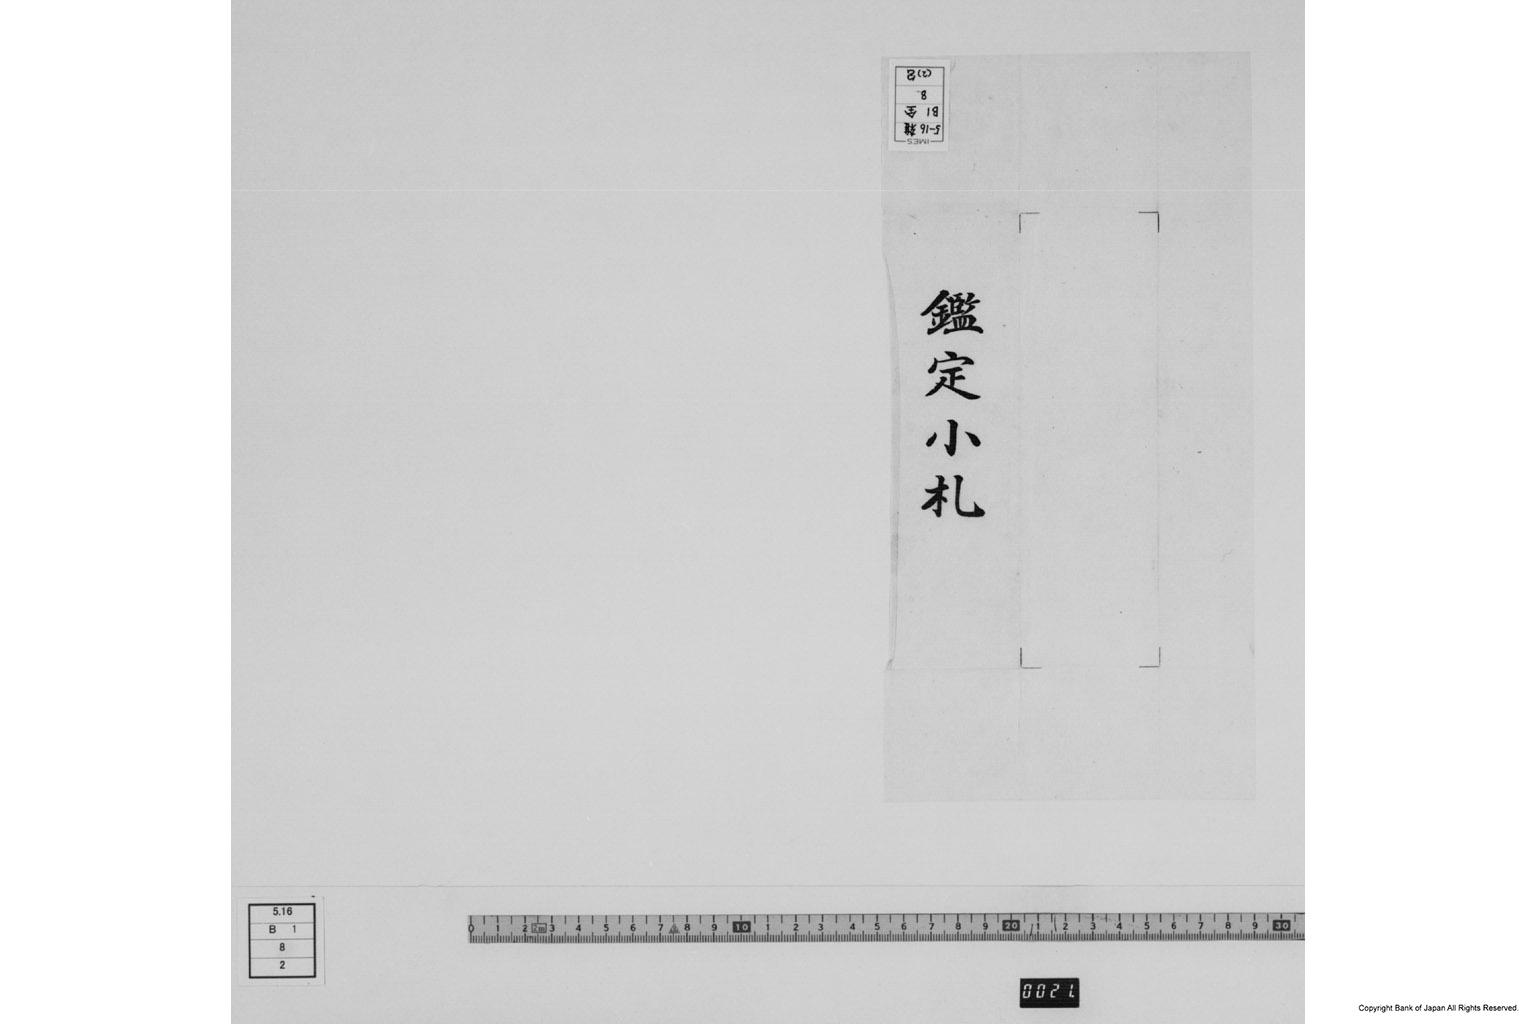 鑑定小札
IMES
5-16 雑
B1 全
8
(2)呂
5.16
B 1
8
2
0 1 2 2m 3 4 5 6 7 8 9 10 1 2 3 4 5 6 7 8 9 20 1 2 3 4 5 6 7 8 9 30
Copyright Bank of Japan All Rights Reserved.